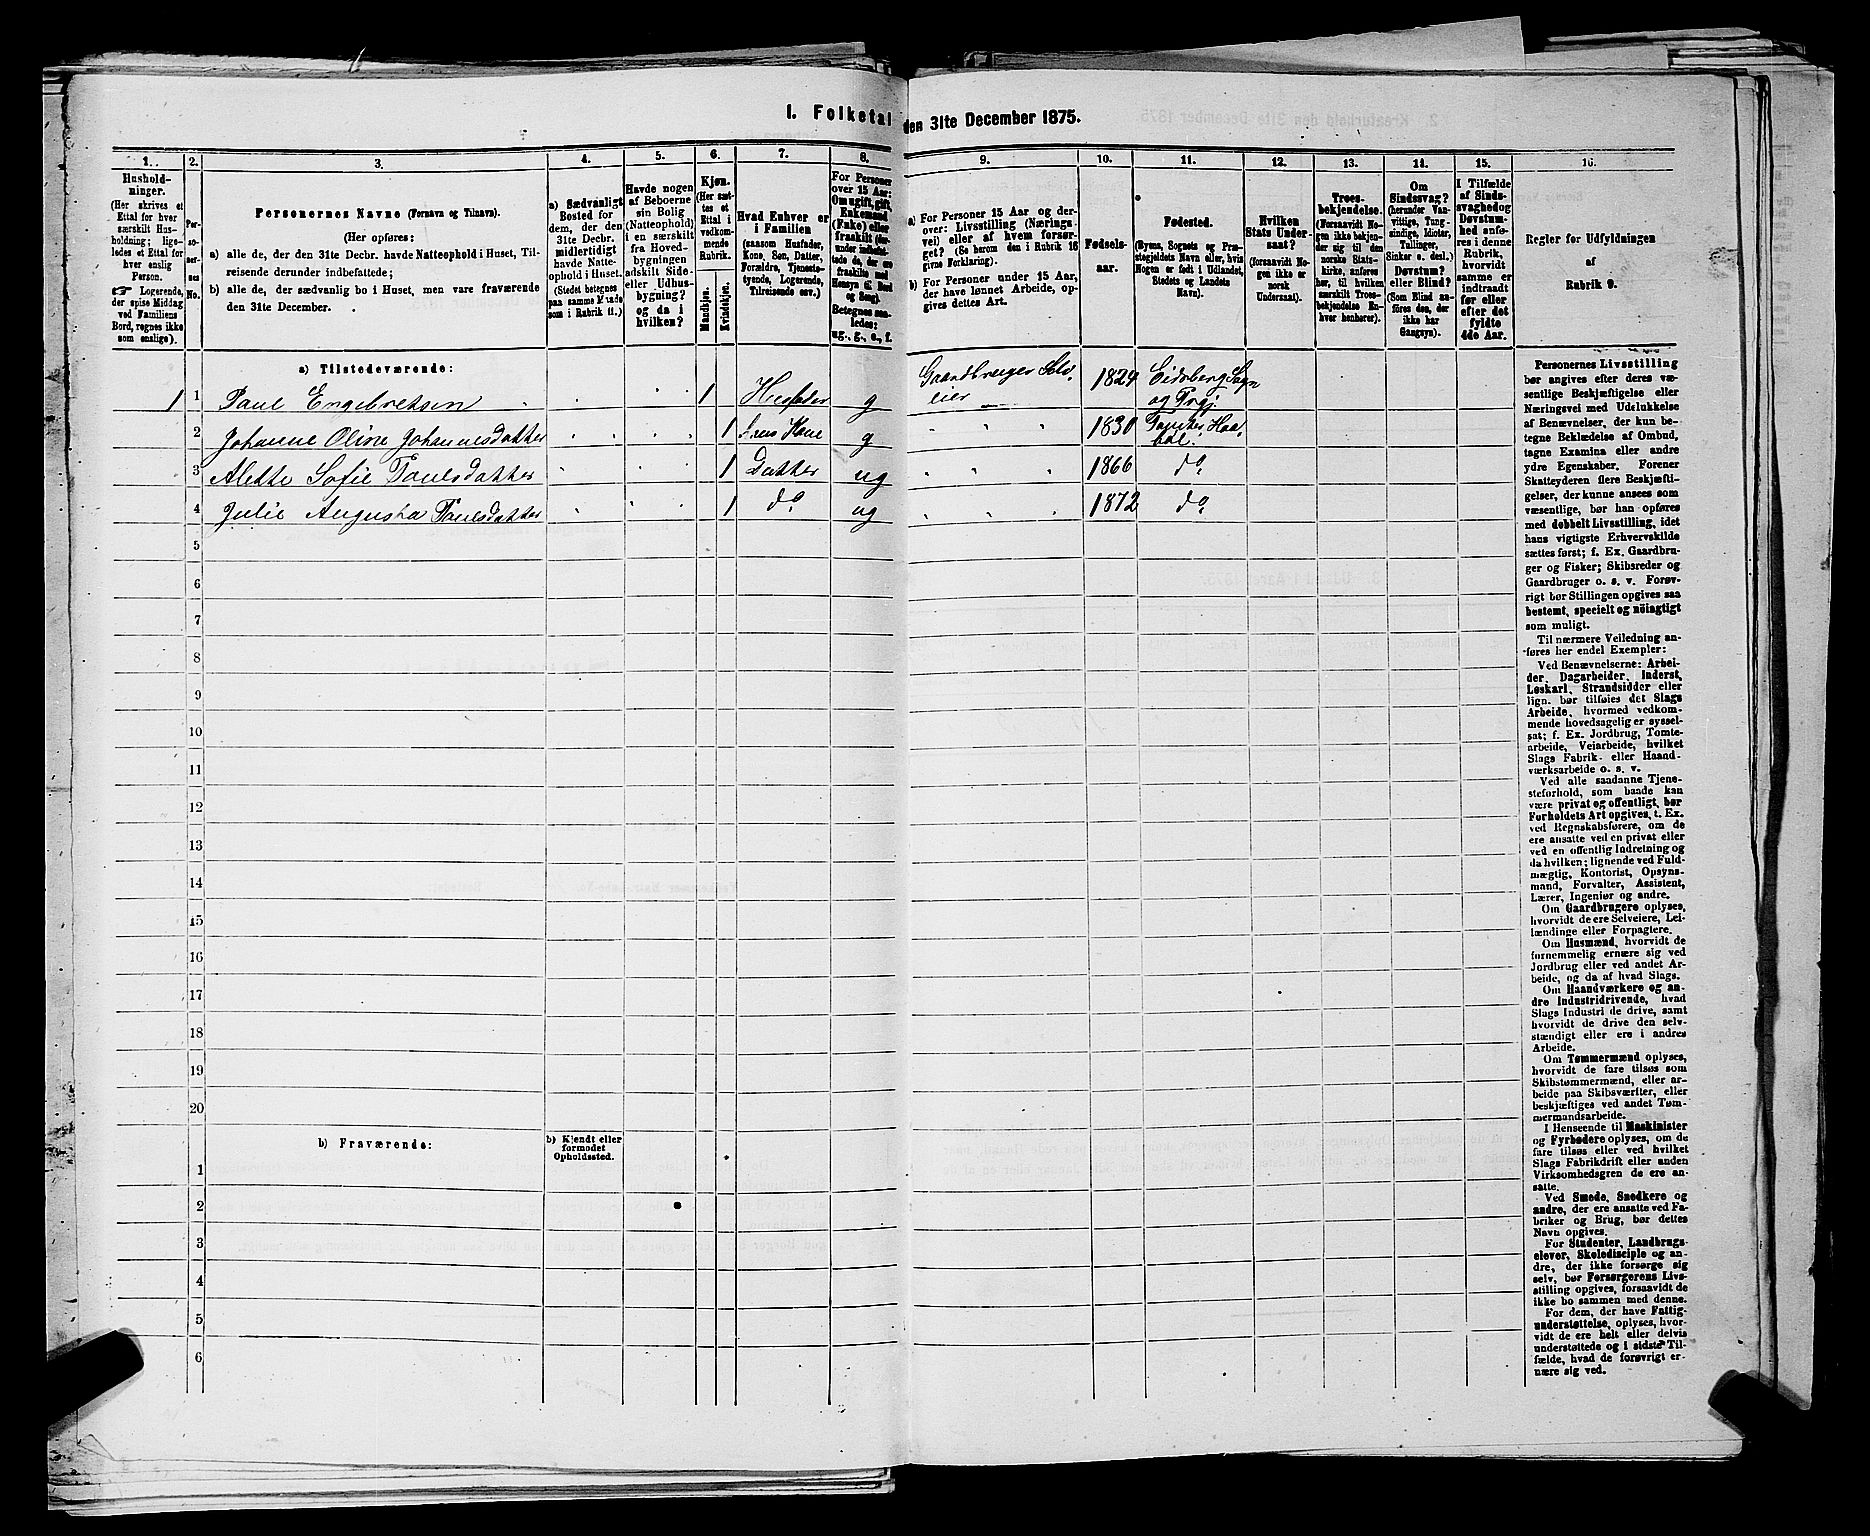 I. Folketal den 31te December 1875.
1. 2. 3. 4. 5. 6. 7. 8. 9. 10. 11. 12. 13. 14. 15. 16.
Hushold-
ninger.
(Her skrives et
Ettal for hver
særskilt Hus-
holdning; lige-
ledes et Ettal for
hver enslig
Person.
☞ Logerende,
der spise Middag
ved Familiens
Bord, regnes ikke
som enslige).
Personernes No.
Personernes Navne (Fornavn og Tilnavn).
(Her opføres:
a) alle de, der den 31te Decbr. havde Natteophold i Huset, Til-
reisende derunder indbefattede;
b) alle de, der sædvanlig bo i Huset, men vare fraværende
den 31te December.
a) Sædvanligt
Bosted for
dem, der den
31te Decbr.
midlertidigt
havde Natte-
ophold i Huset.
(Stedet betegnes
paa samme Maade
som i Rubrik 11.)
Havde nogen
af Beboerne
sin Bolig
(Natteophold)
i en særskilt
fra Hoved-
bygningen
adskilt Side-
eller Udhus-
bygning?
og da i
hvilken?
Kjøn.
(Her sæt-
tes et
Ettal i
vedkom-
mende
Rubrik.
Mandkjøn.
Kvindekjøn.
Hvad Enhver er
i Familien
(saasom Husfader,
Kone, Søn, Datter,
Forældre, Tjeneste-
tyende, Logerende,
Tilreisende osv.)
For Personer
over 15 Aar:
Om ugift, gift,
Enkemand
(Enke) eller
fraskilt (der-
under indbefat-
tede de, der ere
fraskilte med
Hensyn til Bord
og Seng).
Betegnes saa-
ledes:
ug., g., e., f.
a) For Personer 15 Aar og der-
over: Livsstilling (Nærings-
vei) eller af hvem forsør-
get? (Se herom den i Rubrik 16
givne Forklaring).
b) For Personer under 15 Aar,
der have lønnet Arbeide, op-
gives dettes Art.
Fødsels-
aar.
Fødested.
(Byens, Sognets og Præ-
stegjeldets Navn eller, hvis
Nogen er født i Udlandet,
Stedets og Landets
Navn).
Hvilken
Stats Under-
saat?
(forsaavidt No-
gen ikke er
norsk
Undersaat).
Troes-
bekjendelse.
(Forsaavidt No-
gen ikke bekjen-
der sig til den
norske Stats-
kirke, anføres
her, til hvilken
særskilt Troes-
bekjendelse En-
hver henhører).
Om
Sindssvag?
(herunder Van-
vittige, Tung-
sindige, Idioter,
Tullinger,
Sinker o. desl.)
Døvstum?
eller Blind?
(Som Blind an-
føres den, der
ikke har
Gangsyn).
I Tilfælde
af Sinds-
svaghed og
Døvstum-
hed anfø-
res i denne
Rubrik,
hvorvidt
samme er
indtraadt
før eller
efter det
fyldte
4de Aar.
Regler for Udfyldningen
af
Rubrik 9.
a) Tilstedeværende:
1 1 Paul Engebretsen 1 Husfader g Gaardbruger Selv-
eier 1824 Eidsberg Sogn
og Prgj.
2 Johanne Oline Johannesdatter 1 hans Kone g 1830
3 Alette Sofie Paulsdatter 1 Datter ug 1866 do
4 Julie Augusta Paulsdatter 1 do ug 1872 do
5
6
7
8
9
10
11
12
13
14
15
16
17
18
19
20
b) Fraværende:
b) Kjendt eller
formodet
Opholdssted.
1
2
3
4
5
6
Personernes Livsstilling
bør angives efter deres væ-
sentlige Beskjæftigelse eller
Næringsvei med Udelukkelse
af Benævnelser, der kun be-
tegne Beklædelse af Ombud,
tagne Examina eller andre
ydre Egenskaber. Forener
Skatteyderen flere Beskjæfti-
gelser, der kunne ansees som
væsentlige, bør han opføres
med dobbelt Livsstilling, idet
hans vigtigste Erhvervskilde
sættes først; f. Ex. Gaardbru-
ger og Fisker; Skibsreder og
Gaardbruger o. s. v. Forøv-
rigt bør Stillingen opgives saa
bestemt, specielt og nöiagtigt
som muligt.
Til nærmere Veiledning an-
føres her endel Exempler:
Ved Benævnelserne: Arbei-
der, Dagarbeider, Inderst,
Løskarl, Strandsidder eller
lign. bør tilføies det Slags
Arbeide, hvormed vedkom-
mende hovedsagelig er syssel-
sat; f. Ex. Jordbrug, Tomte-
arbeide, Veiarbeide, hvilket
Slags Fabrik- eller Haand-
værksarbeide o. s. v.
Ved alle saadanne Tjene-
steforhold, som baade kan
være privat og offentligt, bør
Forholdets Art opgives, t. Ex.
ved Regnskabsførere, om de
ere ansatte ved en privat eller
ved en offentlig Indretning og
da hvilken; lignende ved Fuld-
mægtig, Kontorist, Opsyns-
mand, Forvalter, Assistent,
Lærer, Ingeniør og andre.
Om Gaardbrugere oplyses,
hvorvidt de ere Selveiere, Lei-
lændinge eller Forpagtere.
Om Husmænd, hvorvidt de
fornemmelig ernære sig ved
Jordbrug eller ved andet Ar-
beide, og da af hvad Slags.
Om Haandværkere og an-
dre Industridrivende, hvad
Slags Industri de drive, samt
hvorvidt de drive den selv-
stændigt eller ere i andres
Arbeide.
Om Tømmermænd oplyses,
hvorvidt de fare tilsøs som
Skibstømmermænd, eller ar-
beide paa Skibsværfter, eller
beskjæftiges ved andet Tøm-
mermandsarbeide.
I Henseende til Maskinister
og Fyrbødere oplyses, om de
fare tilsøs eller ved hvilket
Slags Fabrikdrift eller anden
Virksomhedsgren de ere an-
satte.
Ved Smede, Snedkere og
andre, der ere ansatte ved Fa-
briker og Brug, bør dettes
Navn opgives.
For Studenter, Landbrugs-
elever, Skoledisciple og an-
dre, der ikke forsørge sig
selv, bør Forsørgerens Livs-
stilling opgives, forsaavidt de
ikke bo sammen med denne.
For dem, der have Fattig-
understøttelse, oplyses, hvor-
vidt de ere helt eller delvis
understøttede og i sidste Til-
fælde, hvad de forøvrigt er-
nære sig ved.